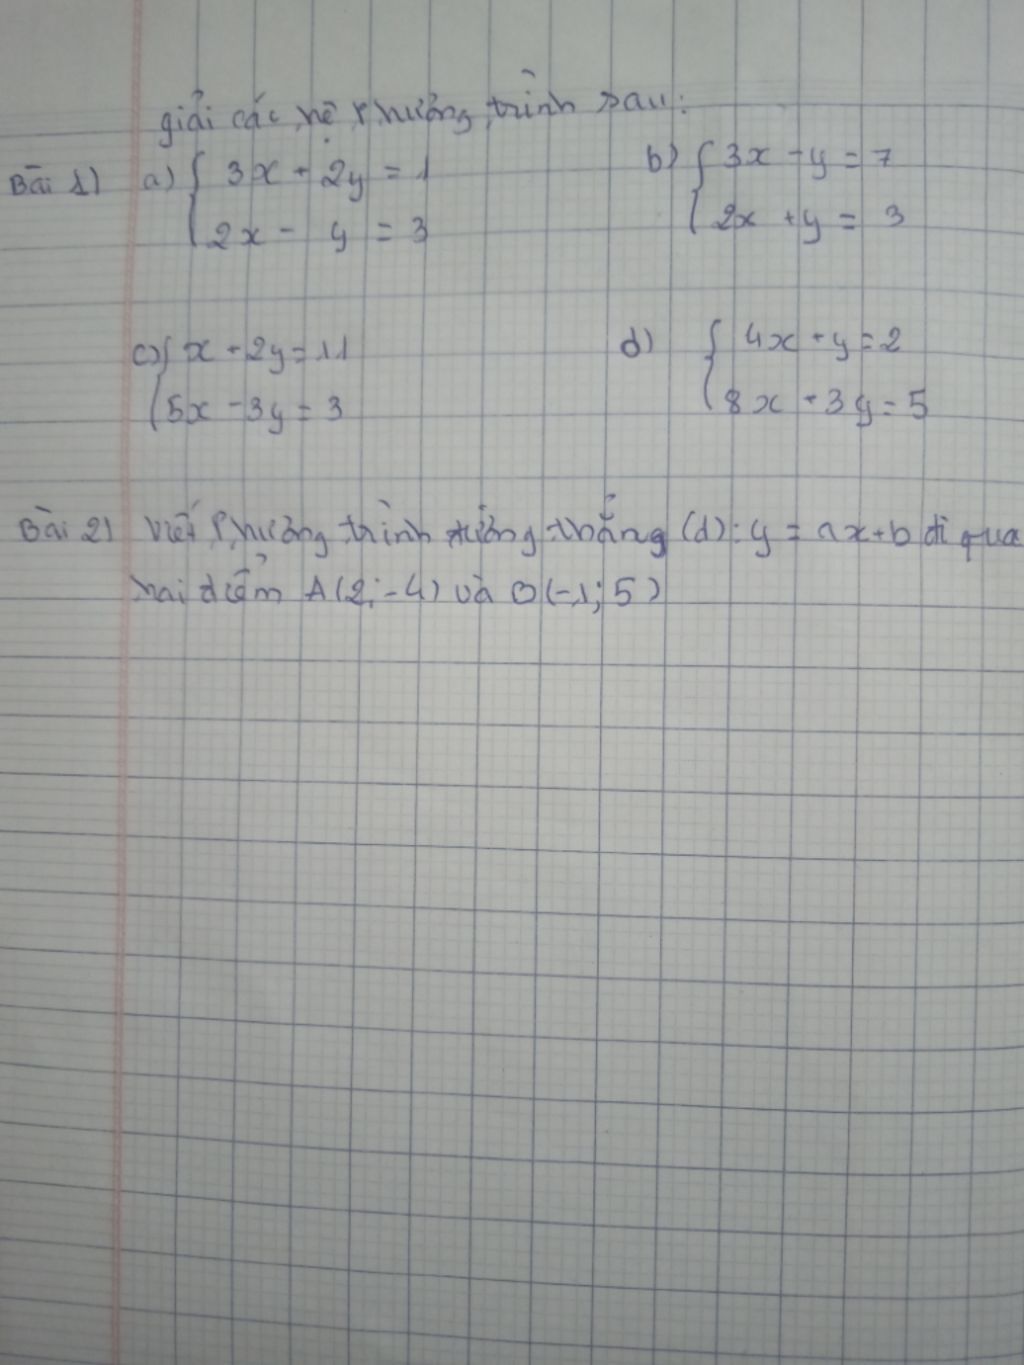 giải các hệ phương trình sau:
Bài 1) a) { 3x + 2y = 1
2x - y = 3
b) { 3x - y = 7
2x + y = 3
c) { x + 2y = 11
5x - 3y = 3
d) { 4x + y = 2
8x + 3y = 5
Bài 2) Viết phương trình đường thẳng (d): y = ax+b đi qua
hai điểm A(2;-4) và B(-1;5)